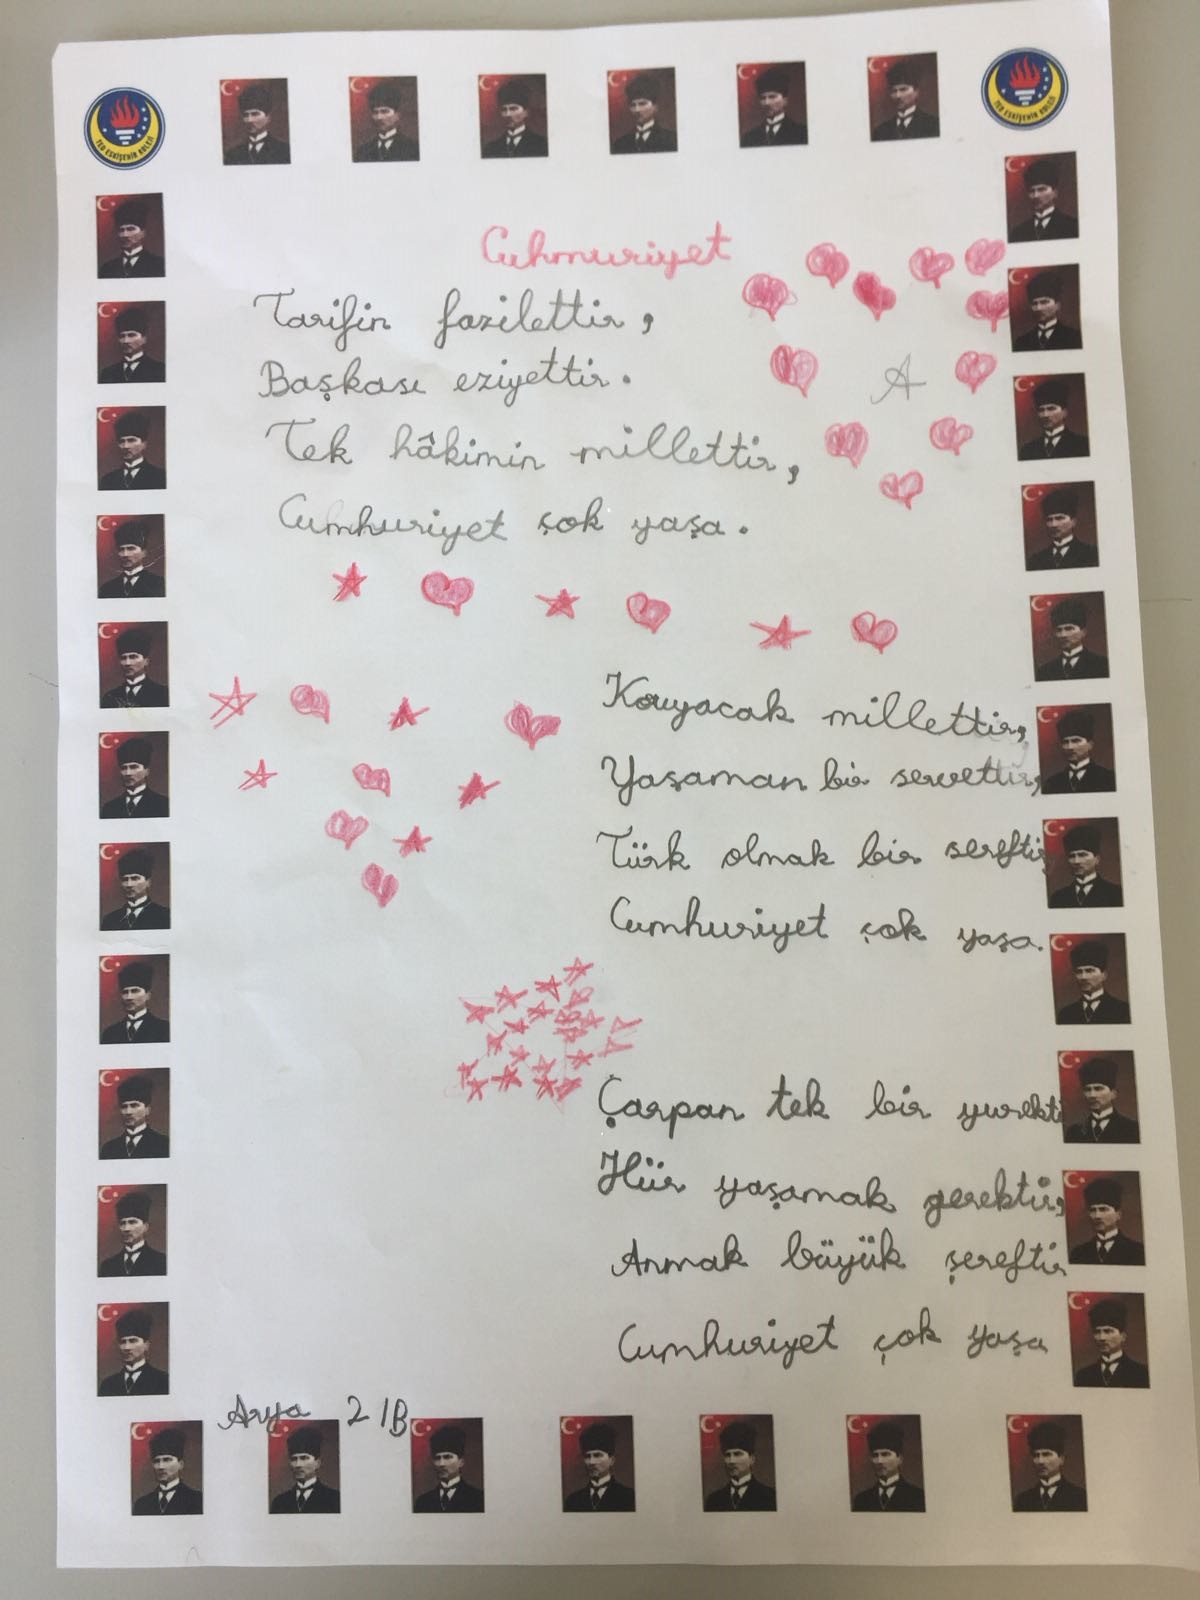 TED ESKİŞEHİR KOLEJİ
TED ESKİŞEHİR KOLEJİ
Cuhmuriyet
Tarifin fazilettir,
Başkası eziyettir.
A
Tek hâkimin millettir,
Cumhuriyet şok yaşa.
Kouyacak millettir,
Yaşaman bir servettir,
Türk olmak bir sereftir
Cumhuriyet çok yaşa.
Çarpan tek bir yurekti
Hür yaşamak gerektir,
Anmak büyük şereftir
Cumhuriyet çok yaşa
Arya 2/B